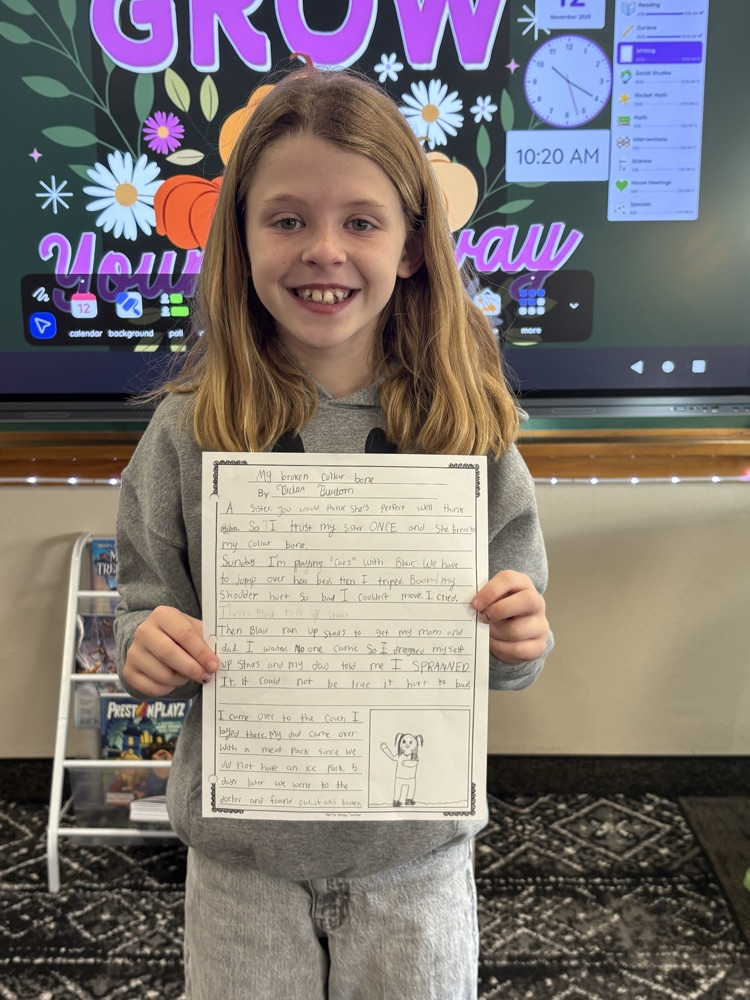 GROW
Your
way
12
November 2025
10:20 AM
Reading
Cursive
Writing
Social Studies
Rocket Math
Math
Interventions
Science
House Meetings
Specials
12
calendar
background
poll
more
PREST N PLAYZ
My broken Collar bone
By
A Sister. You would think she's perfect well think
again. So I trust my sister ONCE and she breacks
my collar bone.
Sunday I'm playing "cats" with Blair. We have
to jump over her bed. then I triped. Boom! my
shoulder hurt so bad I couldn't move. I cried.
Then Blair ran up stairs
Then Blair ran up stairs to get my mom and
dad. I waited No one came So I dragged myself
up stairs and my dad told me I SPRANNED
It. It could not be true it hurt to bad.
I came over to the couch I
layed there. My dad came over
with a meat Pack since we
did not have an ice Pack. 5
days later we went to the
docter and found out it was broken